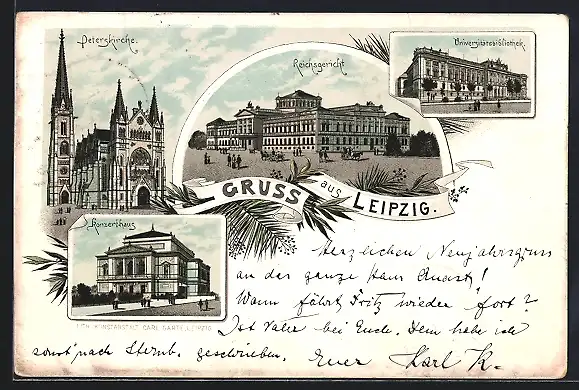 Peterskirche.
Reichsgericht
Universitätsbibliothek.
GRUSS aus LEIPZIG.
Konzerthaus
LITH. KUNSTANSTALT CARL GARTE, LEIPZIG
Herzlichen Neujahrsgruss
an das ganze Haus
Wann fährt Fritz wieder fort?
Ist Vater bei Euch. Dem habe ich
sonst nach Sternb. geschrieben. Euer Karl K.